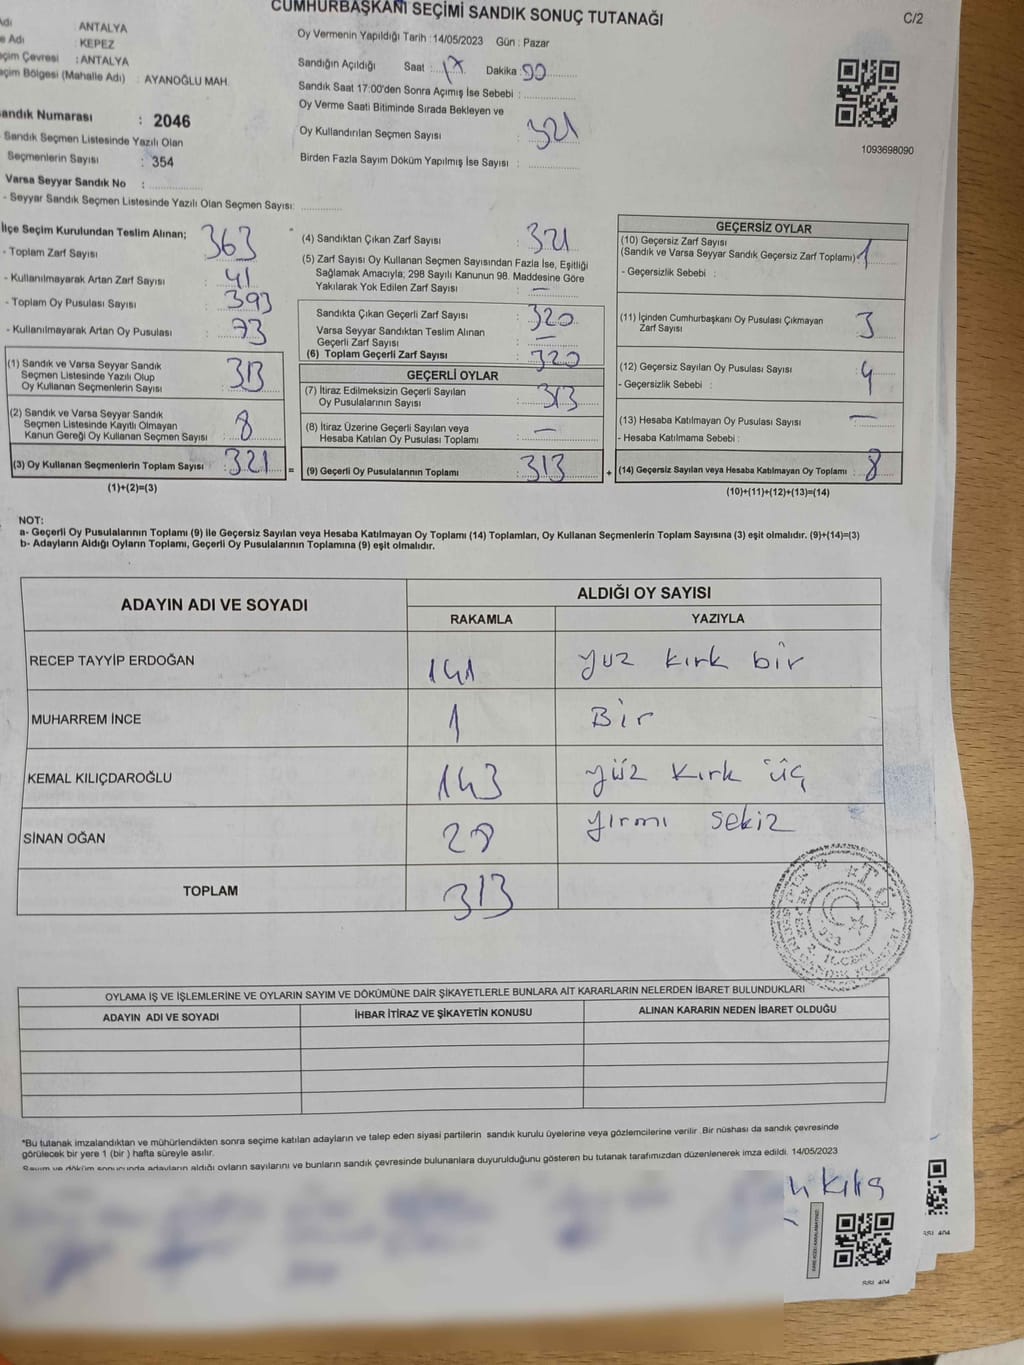 CUMHURBAŞKANI SEÇİMİ SANDIK SONUÇ TUTANAĞI
C/2
Adı ANTALYA
e Adı : KEPEZ
eçim Çevresi : ANTALYA
eçim Bölgesi (Mahalle Adı) : AYANOĞLU MAH.
Oy Vermenin Yapıldığı Tarih : 14/05/2023 Gün : Pazar
Sandığın Açıldığı Saat : 17 Dakika : 00
Sandık Saat 17:00'den Sonra Açımış İse Sebebi :
Oy Verme Saati Bitiminde Sırada Bekleyen ve
Oy Kullandırılan Seçmen Sayısı : 321
Birden Fazla Sayım Döküm Yapılmış İse Sayısı :
1093698090
andık Numarası : 2046
Sandık Seçmen Listesinde Yazılı Olan
Seçmenlerin Sayısı : 354
Varsa Seyyar Sandık No :
- Seyyar Sandık Seçmen Listesinde Yazılı Olan Seçmen Sayısı:
İlçe Seçim Kurulundan Teslim Alınan;
- Toplam Zarf Sayısı : 363
- Kullanılmayarak Artan Zarf Sayısı : 41
- Toplam Oy Pusulası Sayısı : 393
- Kullanılmayarak Artan Oy Pusulası : 73
(1) Sandık ve Varsa Seyyar Sandık
Seçmen Listesinde Yazılı Olup
Oy Kullanan Seçmenlerin Sayısı : 313
(2) Sandık ve Varsa Seyyar Sandık
Seçmen Listesinde Kayıtlı Olmayan
Kanun Gereği Oy Kullanan Seçmen Sayısı : 8
(3) Oy Kullanan Seçmenlerin Toplam Sayısı : 321 =
(1)+(2)=(3)
(4) Sandıktan Çıkan Zarf Sayısı : 321
(5) Zarf Sayısı Oy Kullanan Seçmen Sayısından Fazla İse, Eşitliği
Sağlamak Amacıyla; 298 Sayılı Kanunun 98. Maddesine Göre
Yakılarak Yok Edilen Zarf Sayısı : —
Sandıkta Çıkan Geçerli Zarf Sayısı : 320
Varsa Seyyar Sandıktan Teslim Alınan
Geçerli Zarf Sayısı : —
(6) Toplam Geçerli Zarf Sayısı : 320
GEÇERLİ OYLAR
(7) İtiraz Edilmeksizin Geçerli Sayılan
Oy Pusulalarının Sayısı : 313
(8) İtiraz Üzerine Geçerli Sayılan veya
Hesaba Katılan Oy Pusulası Toplamı : —
(9) Geçerli Oy Pusulalarının Toplamı : 313 +
GEÇERSİZ OYLAR
(10) Geçersiz Zarf Sayısı
(Sandık ve Varsa Seyyar Sandık Geçersiz Zarf Toplamı) 1
- Geçersizlik Sebebi :
(11) İçinden Cumhurbaşkanı Oy Pusulası Çıkmayan
Zarf Sayısı 3
(12) Geçersiz Sayılan Oy Pusulası Sayısı : 4
- Geçersizlik Sebebi :
(13) Hesaba Katılmayan Oy Pusulası Sayısı —
- Hesaba Katılmama Sebebi :
(14) Geçersiz Sayılan veya Hesaba Katılmayan Oy Toplamı : 8
(10)+(11)+(12)+(13)=(14)
NOT:
a- Geçerli Oy Pusulalarının Toplamı (9) ile Geçersiz Sayılan veya Hesaba Katılmayan Oy Toplamı (14) Toplamları, Oy Kullanan Seçmenlerin Toplam Sayısına (3) eşit olmalıdır. (9)+(14)=(3)
b- Adayların Aldığı Oyların Toplamı, Geçerli Oy Pusulalarının Toplamına (9) eşit olmalıdır.
ADAYIN ADI VE SOYADI
ALDIĞI OY SAYISI
RAKAMLA YAZIYLA
RECEP TAYYİP ERDOĞAN 141 yuz kırk bir
MUHARREM İNCE 1 Bir
KEMAL KILIÇDAROĞLU 143 yüz kırk üç
SİNAN OĞAN 28 yırmı sekiz
TOPLAM 313
OYLAMA İŞ VE İŞLEMLERİNE VE OYLARIN SAYIM VE DÖKÜMÜNE DAİR ŞİKAYETLERLE BUNLARA AİT KARARLARIN NELERDEN İBARET BULUNDUKLARI
ADAYIN ADI VE SOYADI İHBAR İTİRAZ VE ŞİKAYETİN KONUSU ALINAN KARARIN NEDEN İBARET OLDUĞU
*Bu tutanak imzalandıktan ve mühürlendikten sonra seçime katılan adayların ve talep eden siyasi partilerin sandık kurulu üyelerine veya gözlemcilerine verilir. Bir nüshası da sandık çevresinde
görülecek bir yere 1 (bir) hafta süreyle asılır.
Sayım ve döküm sonucunda adayların aldığı oyların sayılarını ve bunların sandık çevresinde bulunanlara duyurulduğunu gösteren bu tutanak tarafımızdan düzenlenerek imza edildi. 14/05/2023